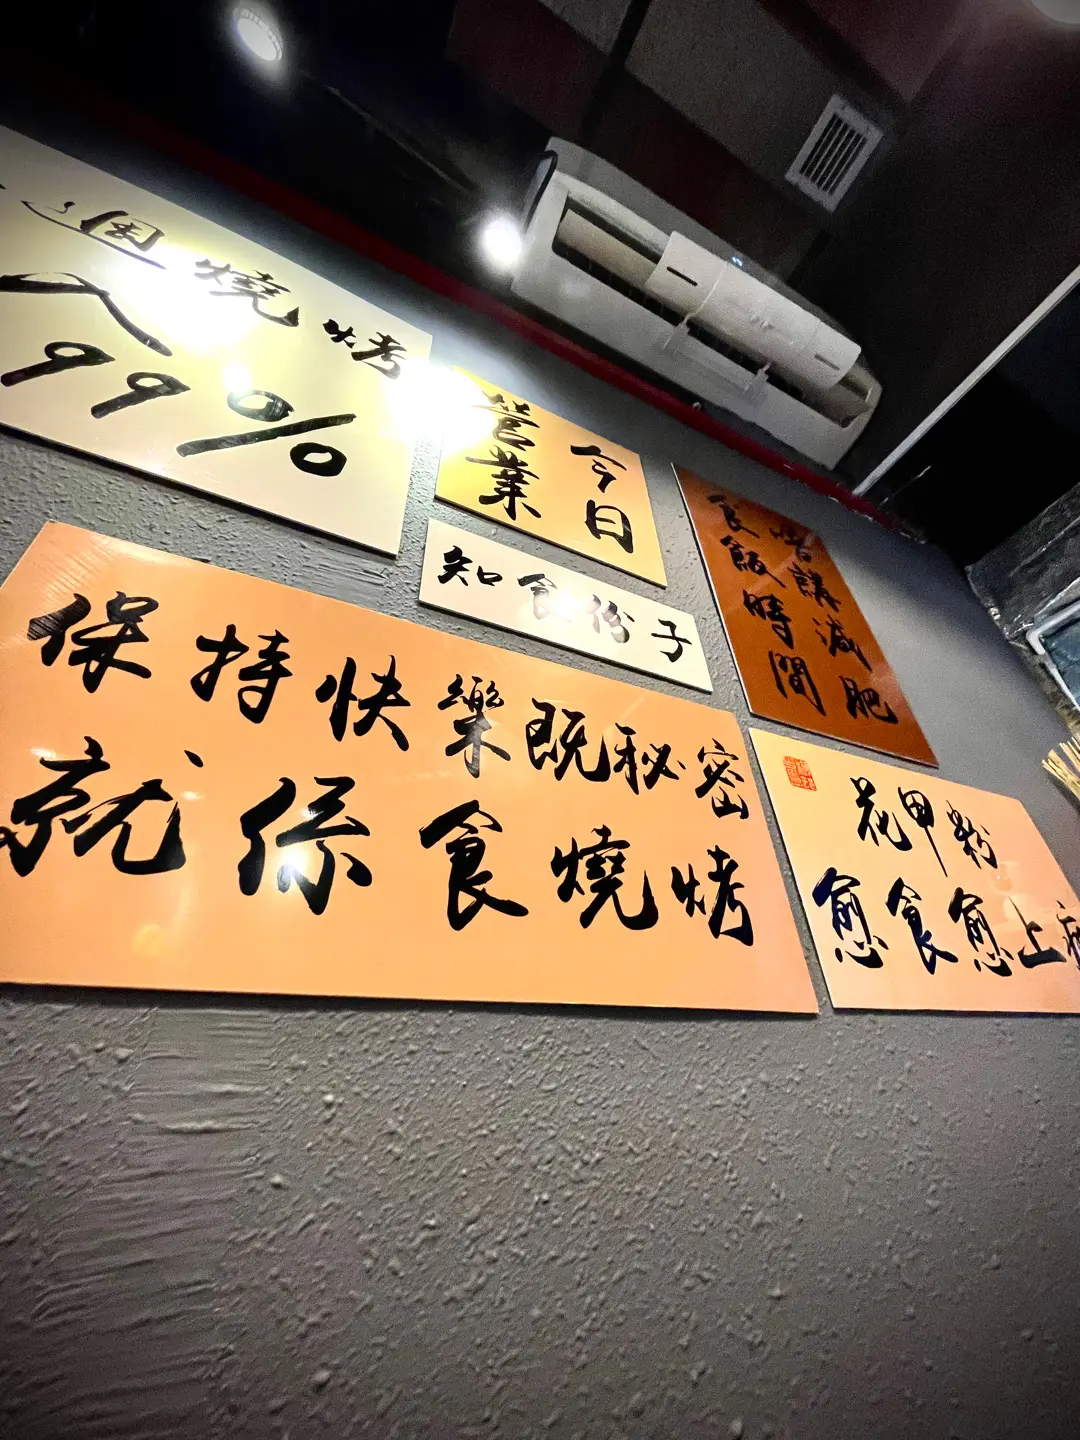 燒烤
99%
今日
營業
知食份子
食飯時間
唔講減肥
保持快樂既秘密
就係食燒烤
花甲粉
愈食愈上